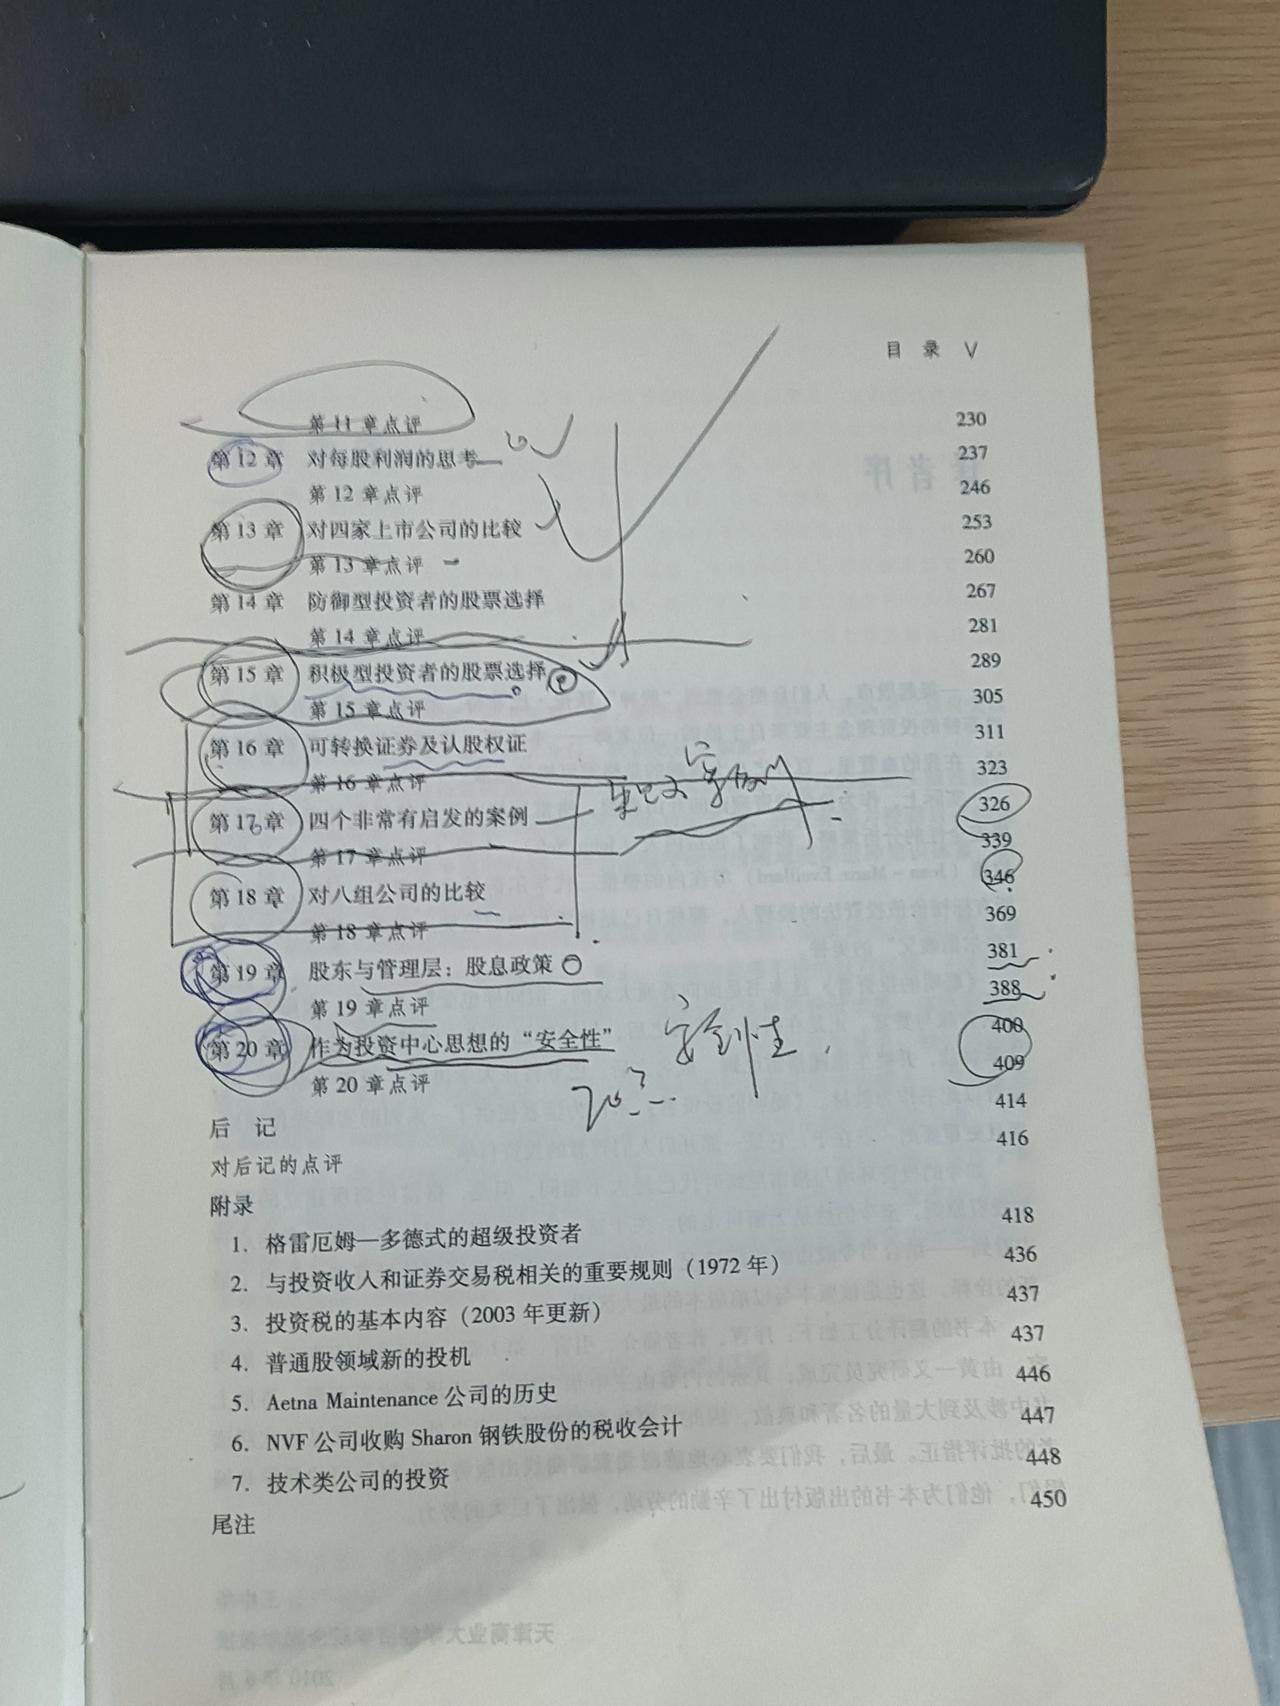 目 录 V
第 11 章点评 230
第 12 章 对每股利润的思考 237
第 12 章点评 246
第 13 章 对四家上市公司的比较 253
第 13 章点评 260
第 14 章 防御型投资者的股票选择 267
第 14 章点评 281
第 15 章 积极型投资者的股票选择 289
第 15 章点评 305
第 16 章 可转换证券及认股权证 311
第 16 章点评 323
第 17 章 四个非常有启发的案例 326
第 17 章点评 339
第 18 章 对八组公司的比较 346
第 18 章点评 369
第 19 章 股东与管理层：股息政策 381
第 19 章点评 388
第 20 章 作为投资中心思想的“安全性” 400
第 20 章点评 409
安全性
后 记 414
对后记的点评 416
附录
1. 格雷厄姆—多德式的超级投资者 418
2. 与投资收入和证券交易税相关的重要规则（1972 年） 436
3. 投资税的基本内容（2003 年更新） 437
4. 普通股领域新的投机 437
5. Aetna Maintenance 公司的历史 446
6. NVF 公司收购 Sharon 钢铁股份的税收会计 447
7. 技术类公司的投资 448
尾注 450